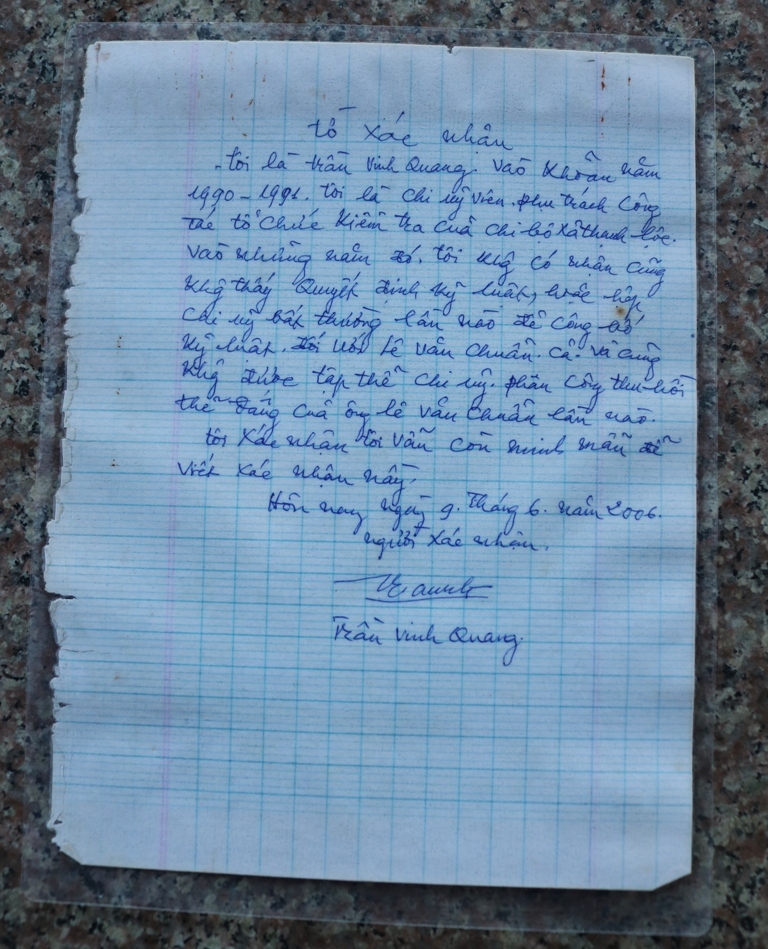 tờ xác nhận
- Tôi là Trần Vinh Quang. Vào khoản năm
1990 - 1991. Tôi là chi uỷ viên. phụ trách công
tác tổ chức kiểm tra của chi bộ xã thạnh lộc.
Vào những năm đó. tôi khg có nhận cũng
khg thấy quyết định kỷ luật, hoặc họp
chi uỷ bất thường lần nào để công bố
kỷ luật. đối với Lê Văn Chuẩn. cả. và cũng
khg được tập thể chi uỷ. phân công thu hồi
thẻ Đảng của ông lê văn chuẩn lần nào.
tôi xác nhận tôi vẫn còn minh mẫn để
viết xác nhận nầy.
Hôm nay ngày 9. Tháng 6. năm 2006.
người xác nhận.
Trần Vinh Quang.